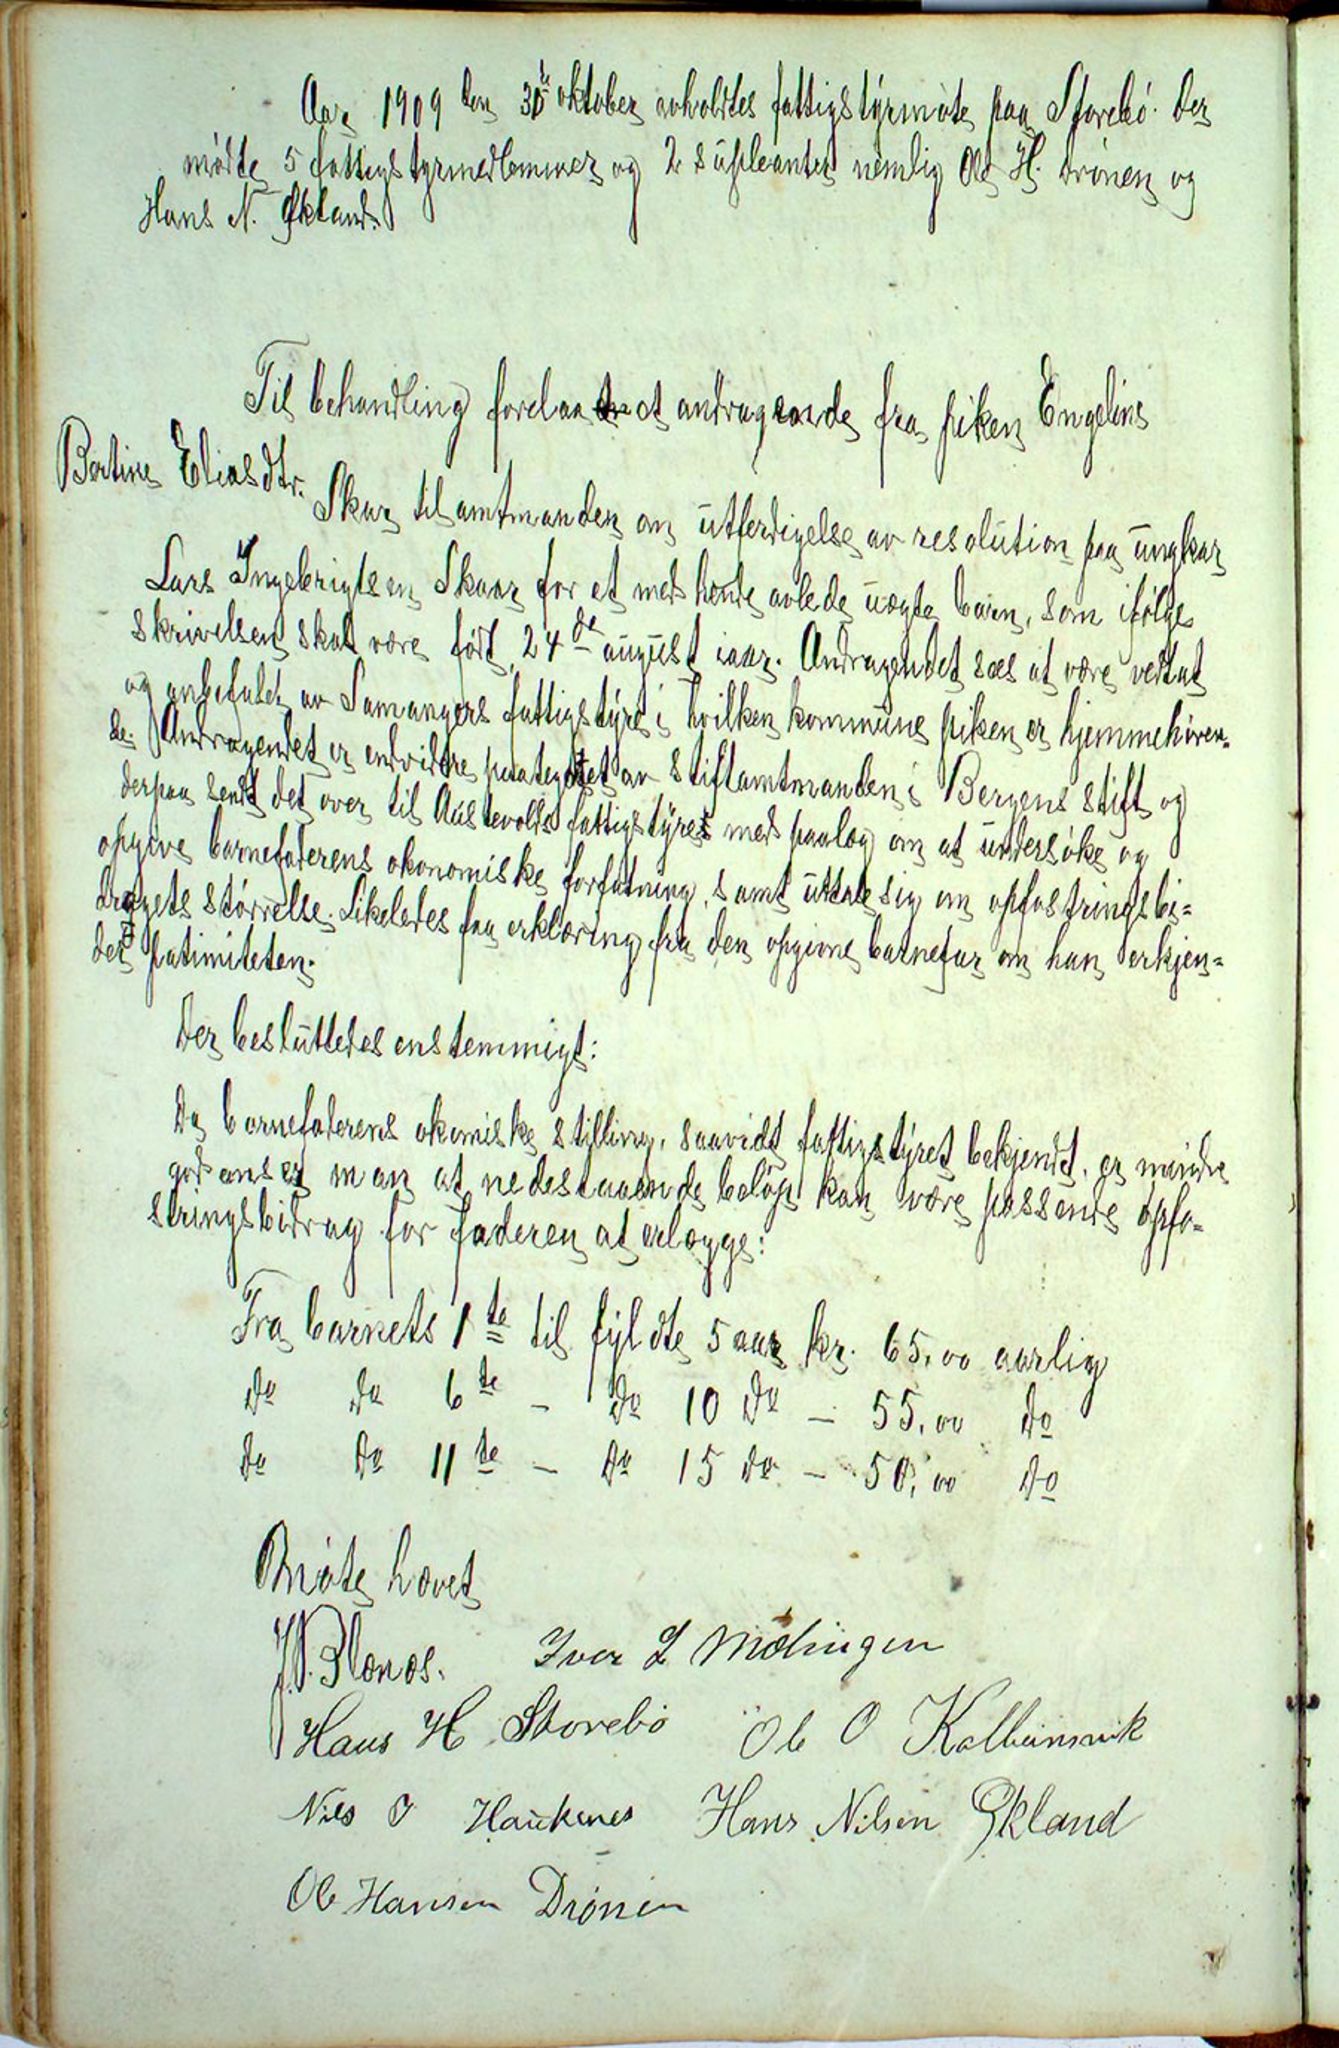 Aar 1909 den 30te oktober avholdtes fattigstyrmøte paa Storebø. Der
mødte 5 fattigstyrmedlemmer og 2 supleanter nemlig Ole H. Drønen og
Hans N. Økland.
Til behandling forelaa et andragende fra piken Engeline
Bertine Eliasdtr. Skar til amtmanden om utferdigelse av resolution paa ungkar
Lars Ingebrigtsen Skaar for et med hende avlede uægte barn, som ifølge
skrivelsen skal være født 24de august iaar. Andragendet sees at være vedtat
og anbefalet av Samangers fattigstyre i hvilken kommune piken er hjemmehøren-
de. Andragendet er endvidere paategnet av stiftamtmanden i Bergens stift og
derpaa sendt det over til Austevolds fattigstyre med paalæg om at undersøke og
opgive barnefaderens økonomiske forfatning, samt uttale sig om opfostringsbi=
dragets størrelse. Likeledes faa erklæring fra den opgivne barnefar om han erkjen=
der patirniteten.
Der besluttedes enstemmigt:
Da barnefaderens økomiske stilling, saavidt fattigstyret bekjendt, er mindre
god anser man at nedestaaende beløp kan være passende opfo-
stringsbidrag for faderen at erlægge:
Fra barnets 1te til fyldte 5 aar kr. 65,00 aarlig
do do 6te - do 10 do - 55,00 do
do do 11te - do 15 do - 50,00 do
Møte hævet
Iver L Møhingen
Hans H Storebø Ole O Kolbeinsvik
Nils J Haukenes Hans Nilsen Økland
Ole Hansen Drønen